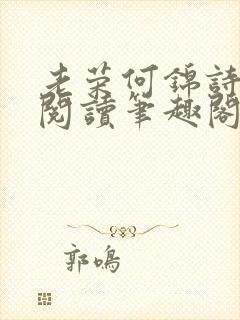 老荣何錦詩
閱讀筆趣閣
郭鳴